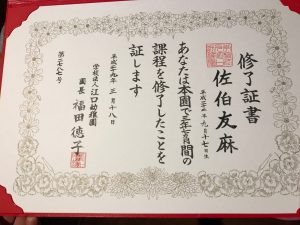 修了証書
佐伯友麻
平成二十二年九月十七日生
あなたは本園で三年間の
課程を修了したことを
証します
平成二十九年三月十八日
学校法人江口幼稚園
園長 福田徳子
第二六八七号